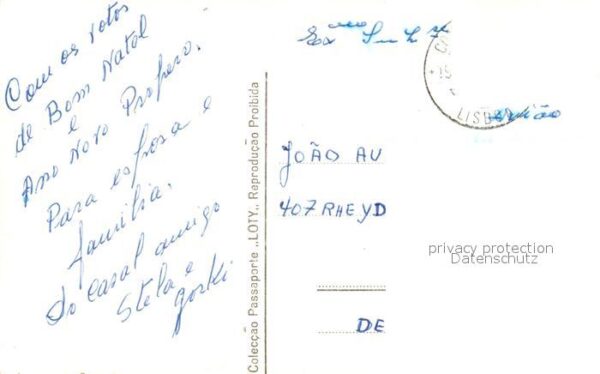 Com os votos
de Bom Natal
e
Ano Novo Prospero.
Para esposa e
familia.
Do casal amigo
Stela e
Gorki
Colecção Passaporte „LOTY„ Reprodução Proibida
JOÃO AU
407 RHEYD
DE
LISB
privacy protection
Datenschutz